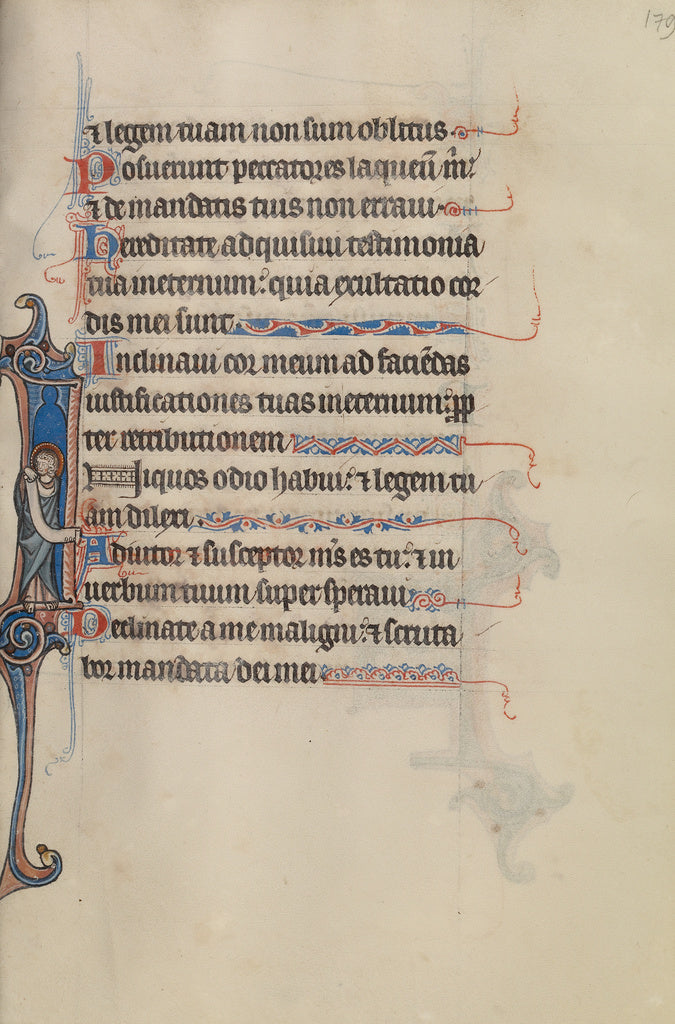 179
⁊ legem tuam non sum oblitus.
Posuerunt peccatores laqueū m̄:
⁊ de mandatis tuis non erraui.
Hereditate adquisiui testimonia
tua ineternum: quia exultatio cor
dis mei sunt.
Inclinaui cor meum ad faciēdas
iustificationes tuas ineternum: ꝓp
ter retributionem
Iniquos odio habui: ⁊ legem tu
am dilexi.
Adiutor ⁊ susceptor m̄s es tu: ⁊ in
uerbum tuum supersperaui.
Declinate a me maligni: ⁊ scruta
bor mandata dei mei.